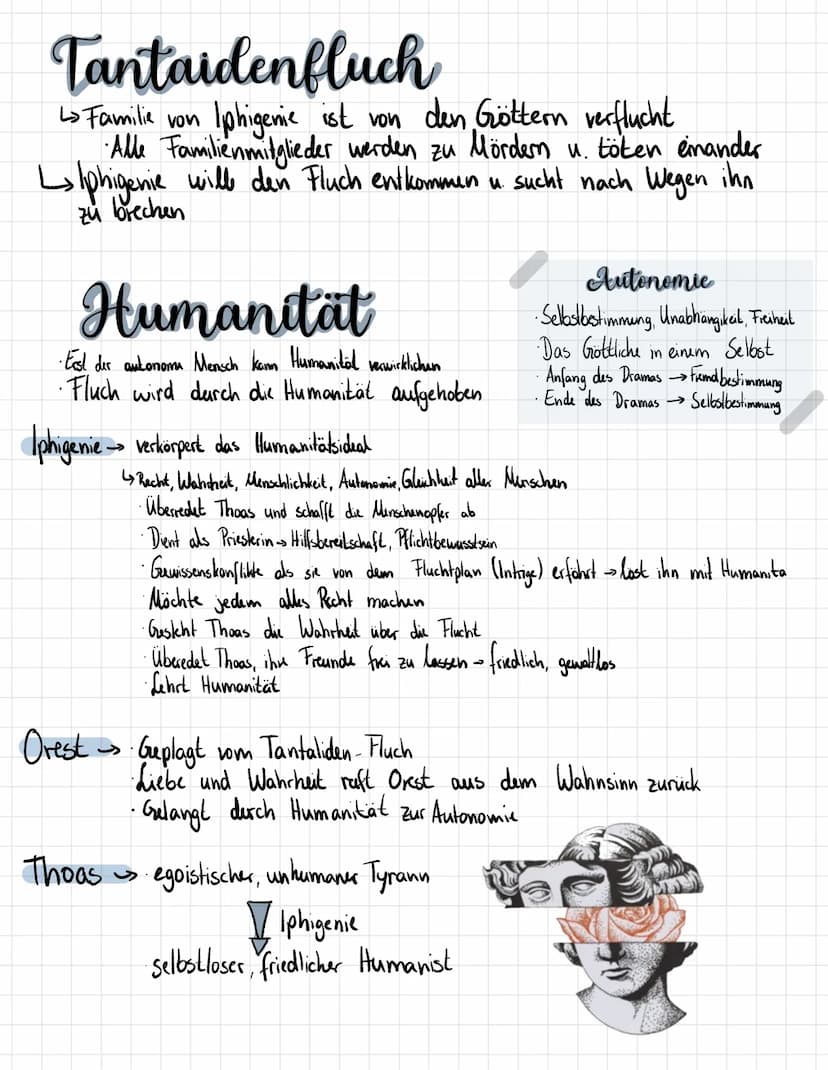 Tantaidenfluch
↳ Familie von Iphigenie ist von den Göttern verflucht
· Alle Familienmitglieder werden zu Mördern u. töten einander
↳ Iphigenie will den Fluch entkommen u. sucht nach Wegen ihn
zu brechen
Humanität
· Erst der autonome Mensch kann Humanität verwirklichen
· Fluch wird durch die Humanität aufgehoben
Autonomie
· Selbstbestimmung, Unabhängikeit, Freiheit
· Das Göttliche in einem Selbst
· Anfang des Dramas → Fremdbestimmung
· Ende des Dramas → Selbstbestimmung
Iphigenie → verkörpert das Humanitätsideal
↳ Recht, Wahrheit, Menschlichkeit, Autonomie, Gleichheit aller Menschen
· Überredet Thoas und schafft die Menschenopfer ab
· Dient als Priesterin → Hilfsbereitschaft, Pflichtbewusstsein
· Gewissenskonflikte als sie von dem Fluchtplan (Intrige) erfährt → löst ihn mit Humanita
· Möchte jedem alles Recht machen
· Gesteht Thoas die Wahrheit über die Flucht
· Überedet Thoas, ihre Freunde frei zu lassen → friedlich, gewaltlos
· Lehrt Humanität
Orest → · Geplagt vom Tantaliden-Fluch
· Liebe und Wahrheit ruft Orest aus dem Wahnsinn zurück
· Gelangt durch Humanität zur Autonomie
Thoas → · egoistischer, unhumaner Tyrann
Iphigenie
· selbstloser, friedlicher Humanist